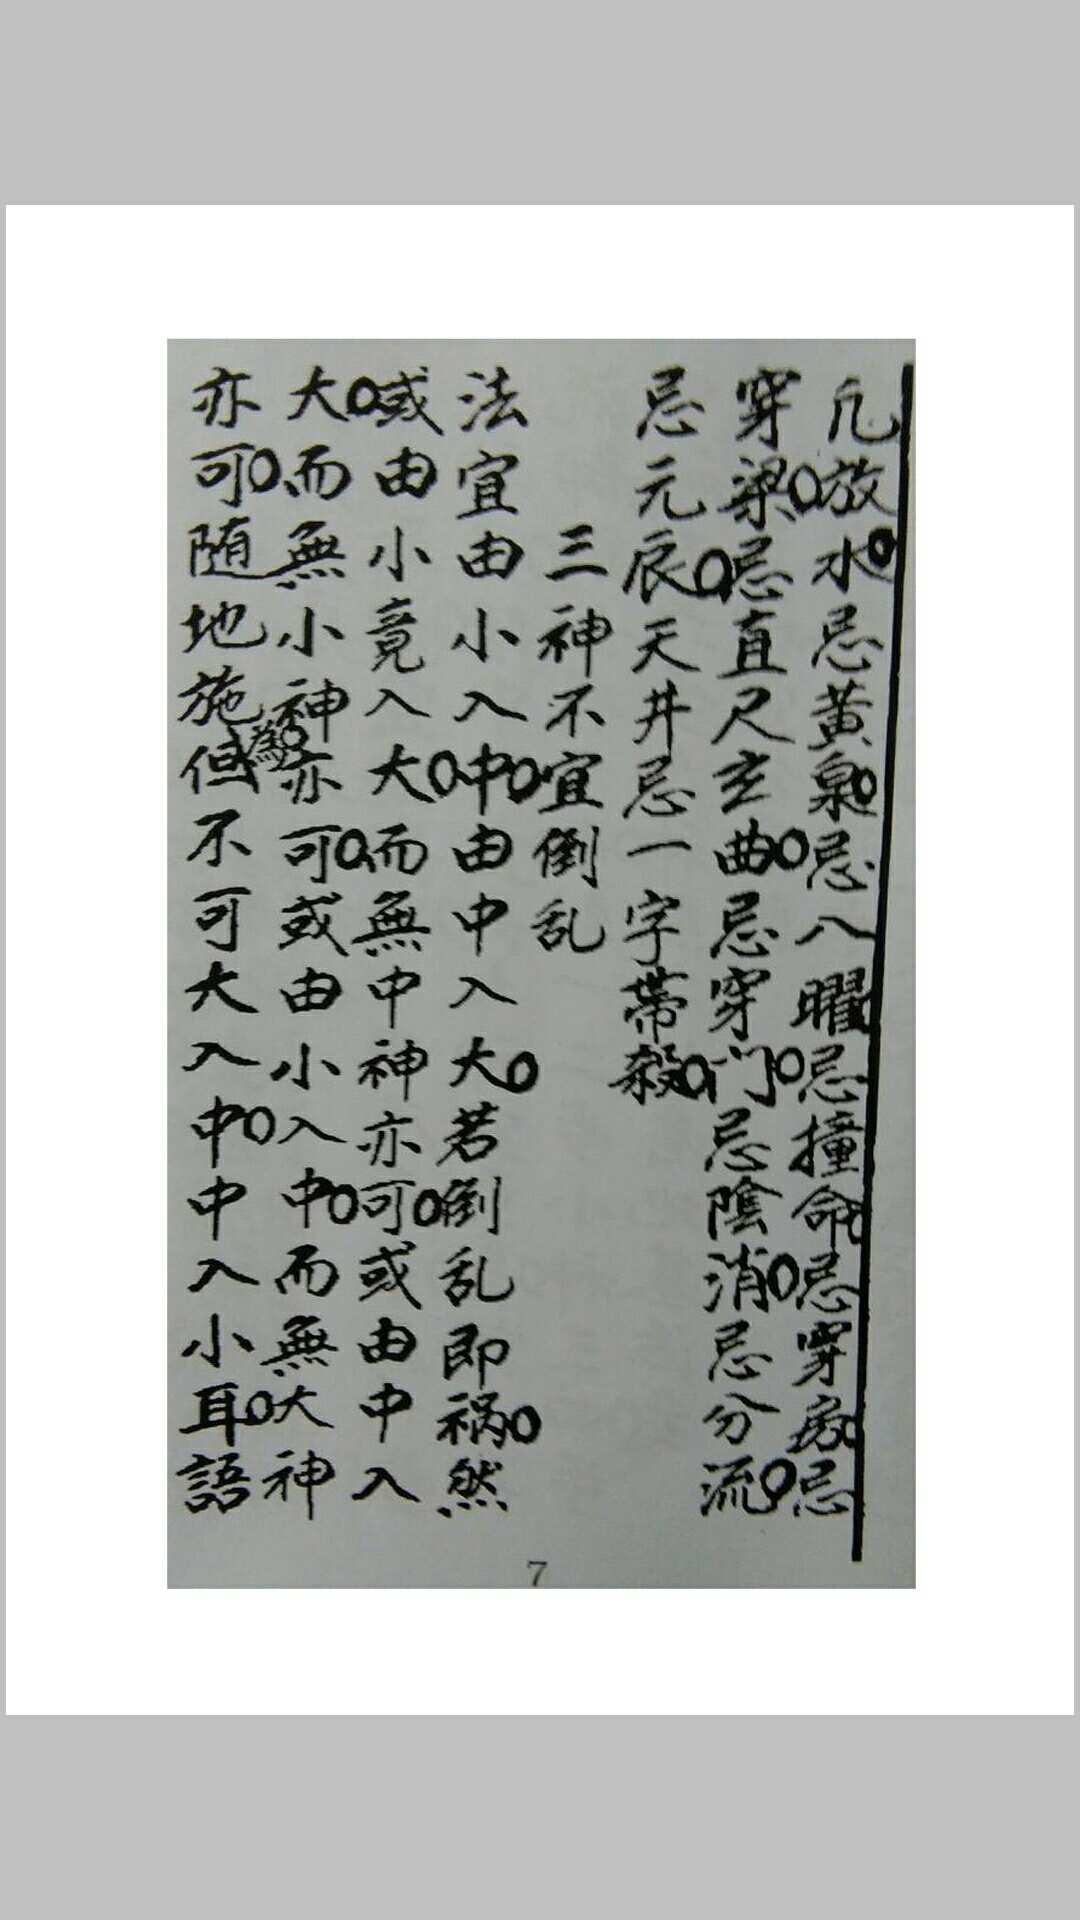 凢放水。忌黄泉。忌八曜忌撞命。忌穿房。忌
穿梁。忌直尺玄曲。忌穿门。忌陰消。忌分流。
忌元辰。天井忌一字帶殺。
三神不宜倒乱
法宜由小入中。由中入大。若倒乱即祸。然
或由小竟入大。而無中神亦可。或由中入
大。而無小神亦可。或由小入中。而無大神
亦可。随地施為但不可大入中。中入小耳。語
7